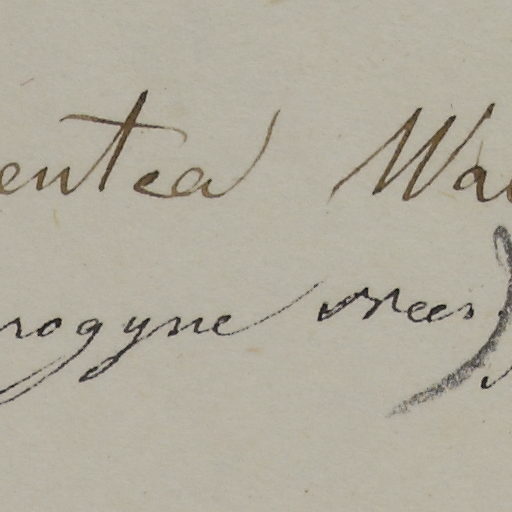 entea Wal
rogyne Nees)